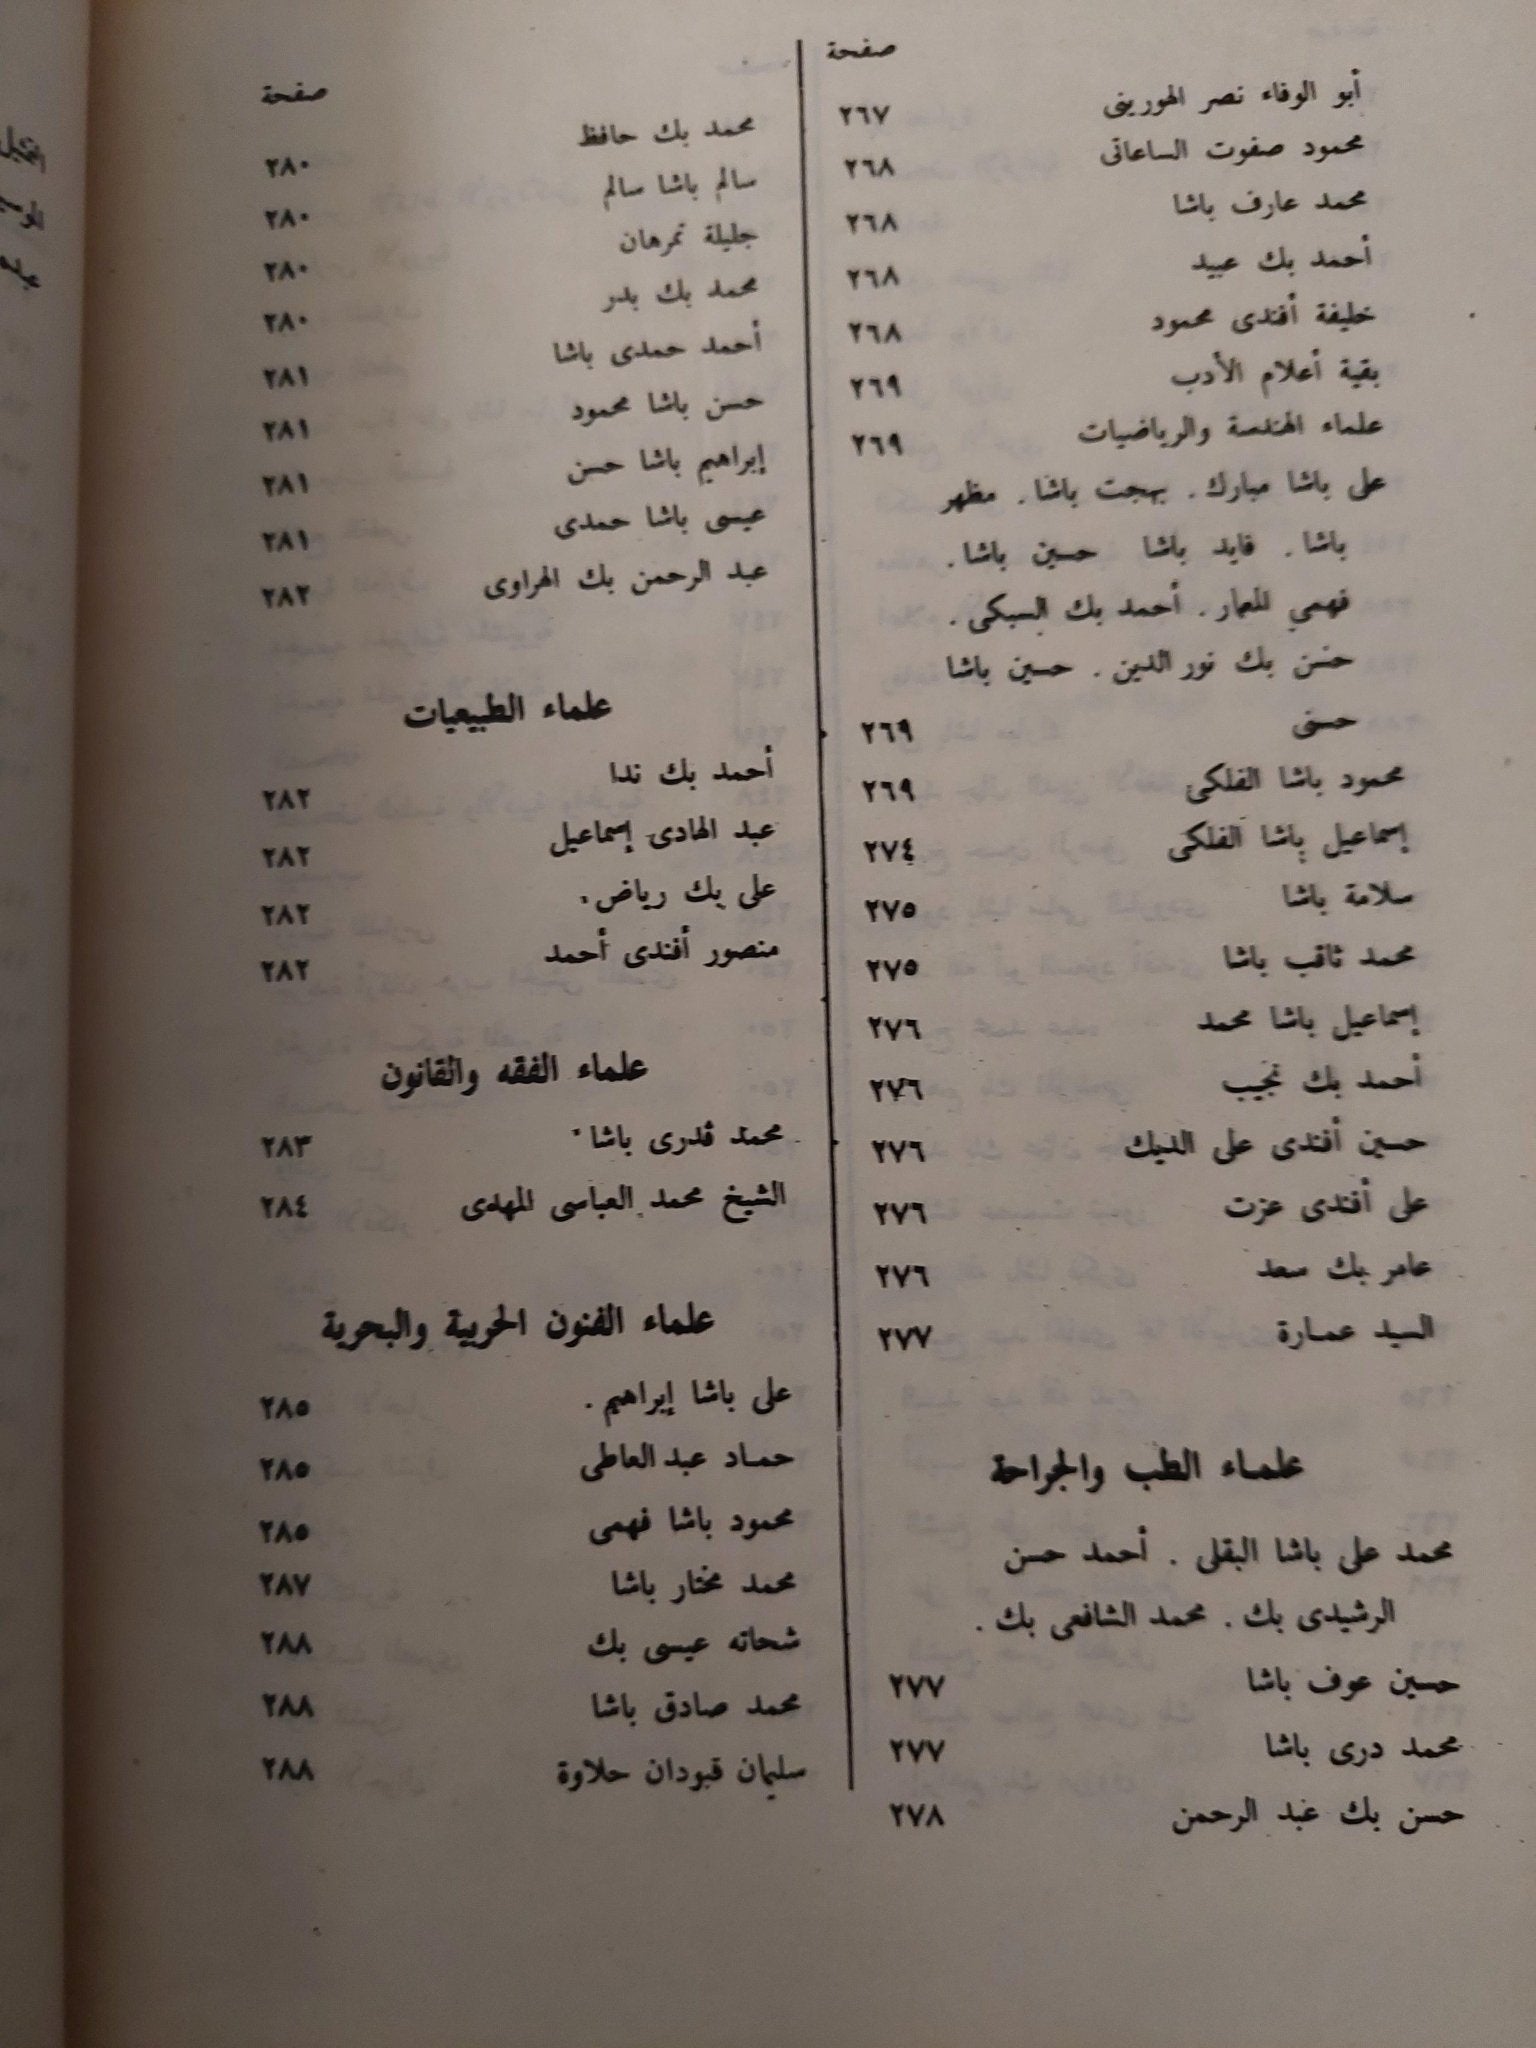 صفحة
أبو الوفاء نصر الهورينى ٢٦٧
محمود صفوت الساعاتى ٢٦٨
محمد عارف باشا ٢٦٨
أحمد بك عبيد ٢٦٨
خليفة أفندى محمود ٢٦٨
بقية أعلام الأدب ٢٦٩
علماء الهندسة والرياضيات ٢٦٩
على باشا مبارك. بهجت باشا. مظهر
باشا. فايد باشا حسين باشا.
فهمي المعمار. أحمد بك السبكى.
حسن بك نور الدين. حسين باشا
حسنى ٢٦٩
محمود باشا الفلكى ٢٦٩
إسماعيل باشا الفلكى ٢٧٤
سلامة باشا ٢٧٥
محمد ثاقب باشا ٢٧٥
إسماعيل باشا محمد ٢٧٦
أحمد بك نجيب ٢٧٦
حسين أفندى على الديك ٢٧٦
على أفندى عزت ٢٧٦
عامر بك سعد ٢٧٦
السيد عمارة ٢٧٧
علماء الطب والجراحة
محمد على باشا البقلى. أحمد حسن
الرشيدى بك. محمد الشافعى بك.
حسين عوف باشا ٢٧٧
محمد درى باشا ٢٧٧
حسن بك عبد الرحمن ٢٧٨
صفحة
محمد بك حافظ ٢٨٠
سالم باشا سالم ٢٨٠
جليلة تمرهان ٢٨٠
محمد بك بدر ٢٨٠
أحمد حمدى باشا ٢٨١
حسن باشا محمود ٢٨١
إبراهيم باشا حسن ٢٨١
عيسى باشا حمدى ٢٨١
عبد الرحمن بك الهراوى ٢٨٢
علماء الطبيعيات
أحمد بك ندا ٢٨٢
عبد الهادى إسماعيل ٢٨٢
على بك رياض. ٢٨٢
منصور أفندى أحمد ٢٨٢
علماء الفقه والقانون
محمد قدرى باشا ٢٨٣
الشيخ محمد العباسى المهدى ٢٨٤
علماء الفنون الحربية والبحرية
على باشا إبراهيم. ٢٨٥
حماد عبد العاطى ٢٨٥
محمود باشا فهمى ٢٨٥
محمد مختار باشا ٢٨٧
شحاته عيسى بك ٢٨٨
محمد صادق باشا ٢٨٨
سليمان قبودان حلاوة ٢٨٨